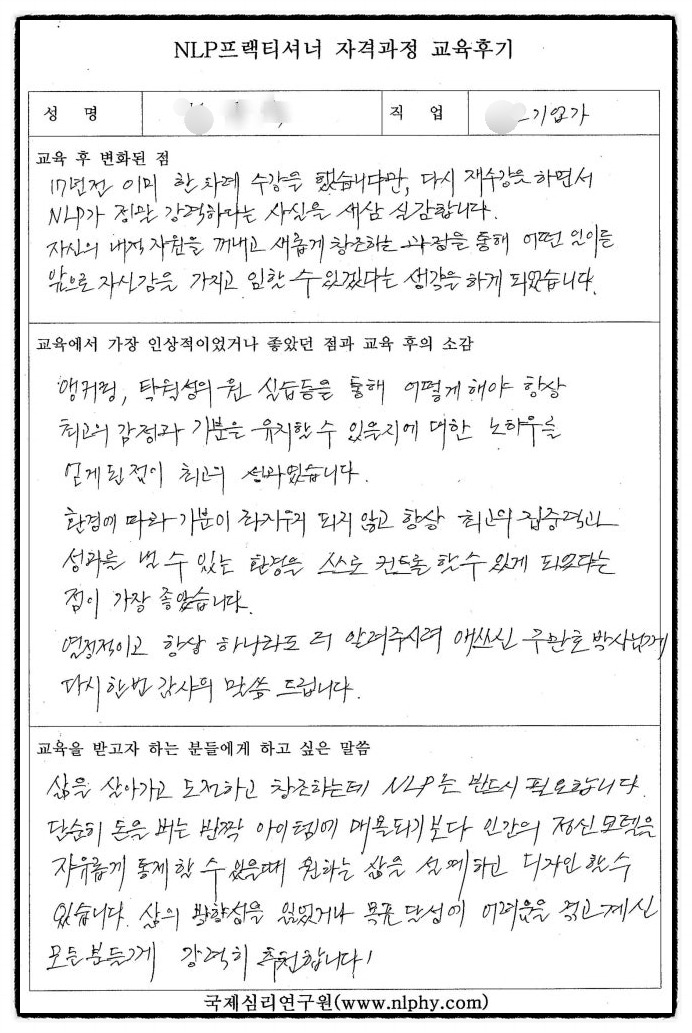 NLP프랙티셔너 자격과정 교육후기
성 명
직 업 기업가
교육 후 변화된 점
17년전 이미 한 차례 수강을 했습니다만, 다시 재수강을 하면서
NLP가 정말 강력하다는 사실을 새삼 실감합니다.
자신의 내적 자원을 꺼내고 새롭게 창조하는 과정을 통해 어떤 일이든
앞으로 자신감을 가지고 임할 수 있겠다는 생각을 하게 되었습니다.
교육에서 가장 인상적이었거나 좋았던 점과 교육 후의 소감
앵커링, 탁월성의 원 실습등을 통해 어떻게 해야 항상
최고의 감정과 기분을 유지할 수 있을지에 대한 노하우를
얻게 된 점이 최고의 성과였습니다.
환경에 따라 기분이 좌지우지 되지 않고 항상 최고의 집중력과
성과를 낼 수 있는 환경을 스스로 컨트롤 할 수 있게 되었다는
점이 가장 좋았습니다.
열정적이고 항상 하나라도 더 알려주시려 애쓰신 박사님께
다시 한번 감사의 말씀 드립니다.
교육을 받고자 하는 분들에게 하고 싶은 말씀
삶을 살아가고 도전하고 창조하는데 NLP는 반드시 필요합니다.
단순히 돈을 버는 반짝 아이템에 매몰되기보다 인간의 정신모델을
자유롭게 통제할 수 있을때 원하는 삶을 설계하고 디자인 할 수
있습니다. 삶의 방향성을 잃었거나 목표 달성에 어려움을 겪고 계신
모든 분들께 강력히 추천합니다!
국제심리연구원(www.nlphy.com)